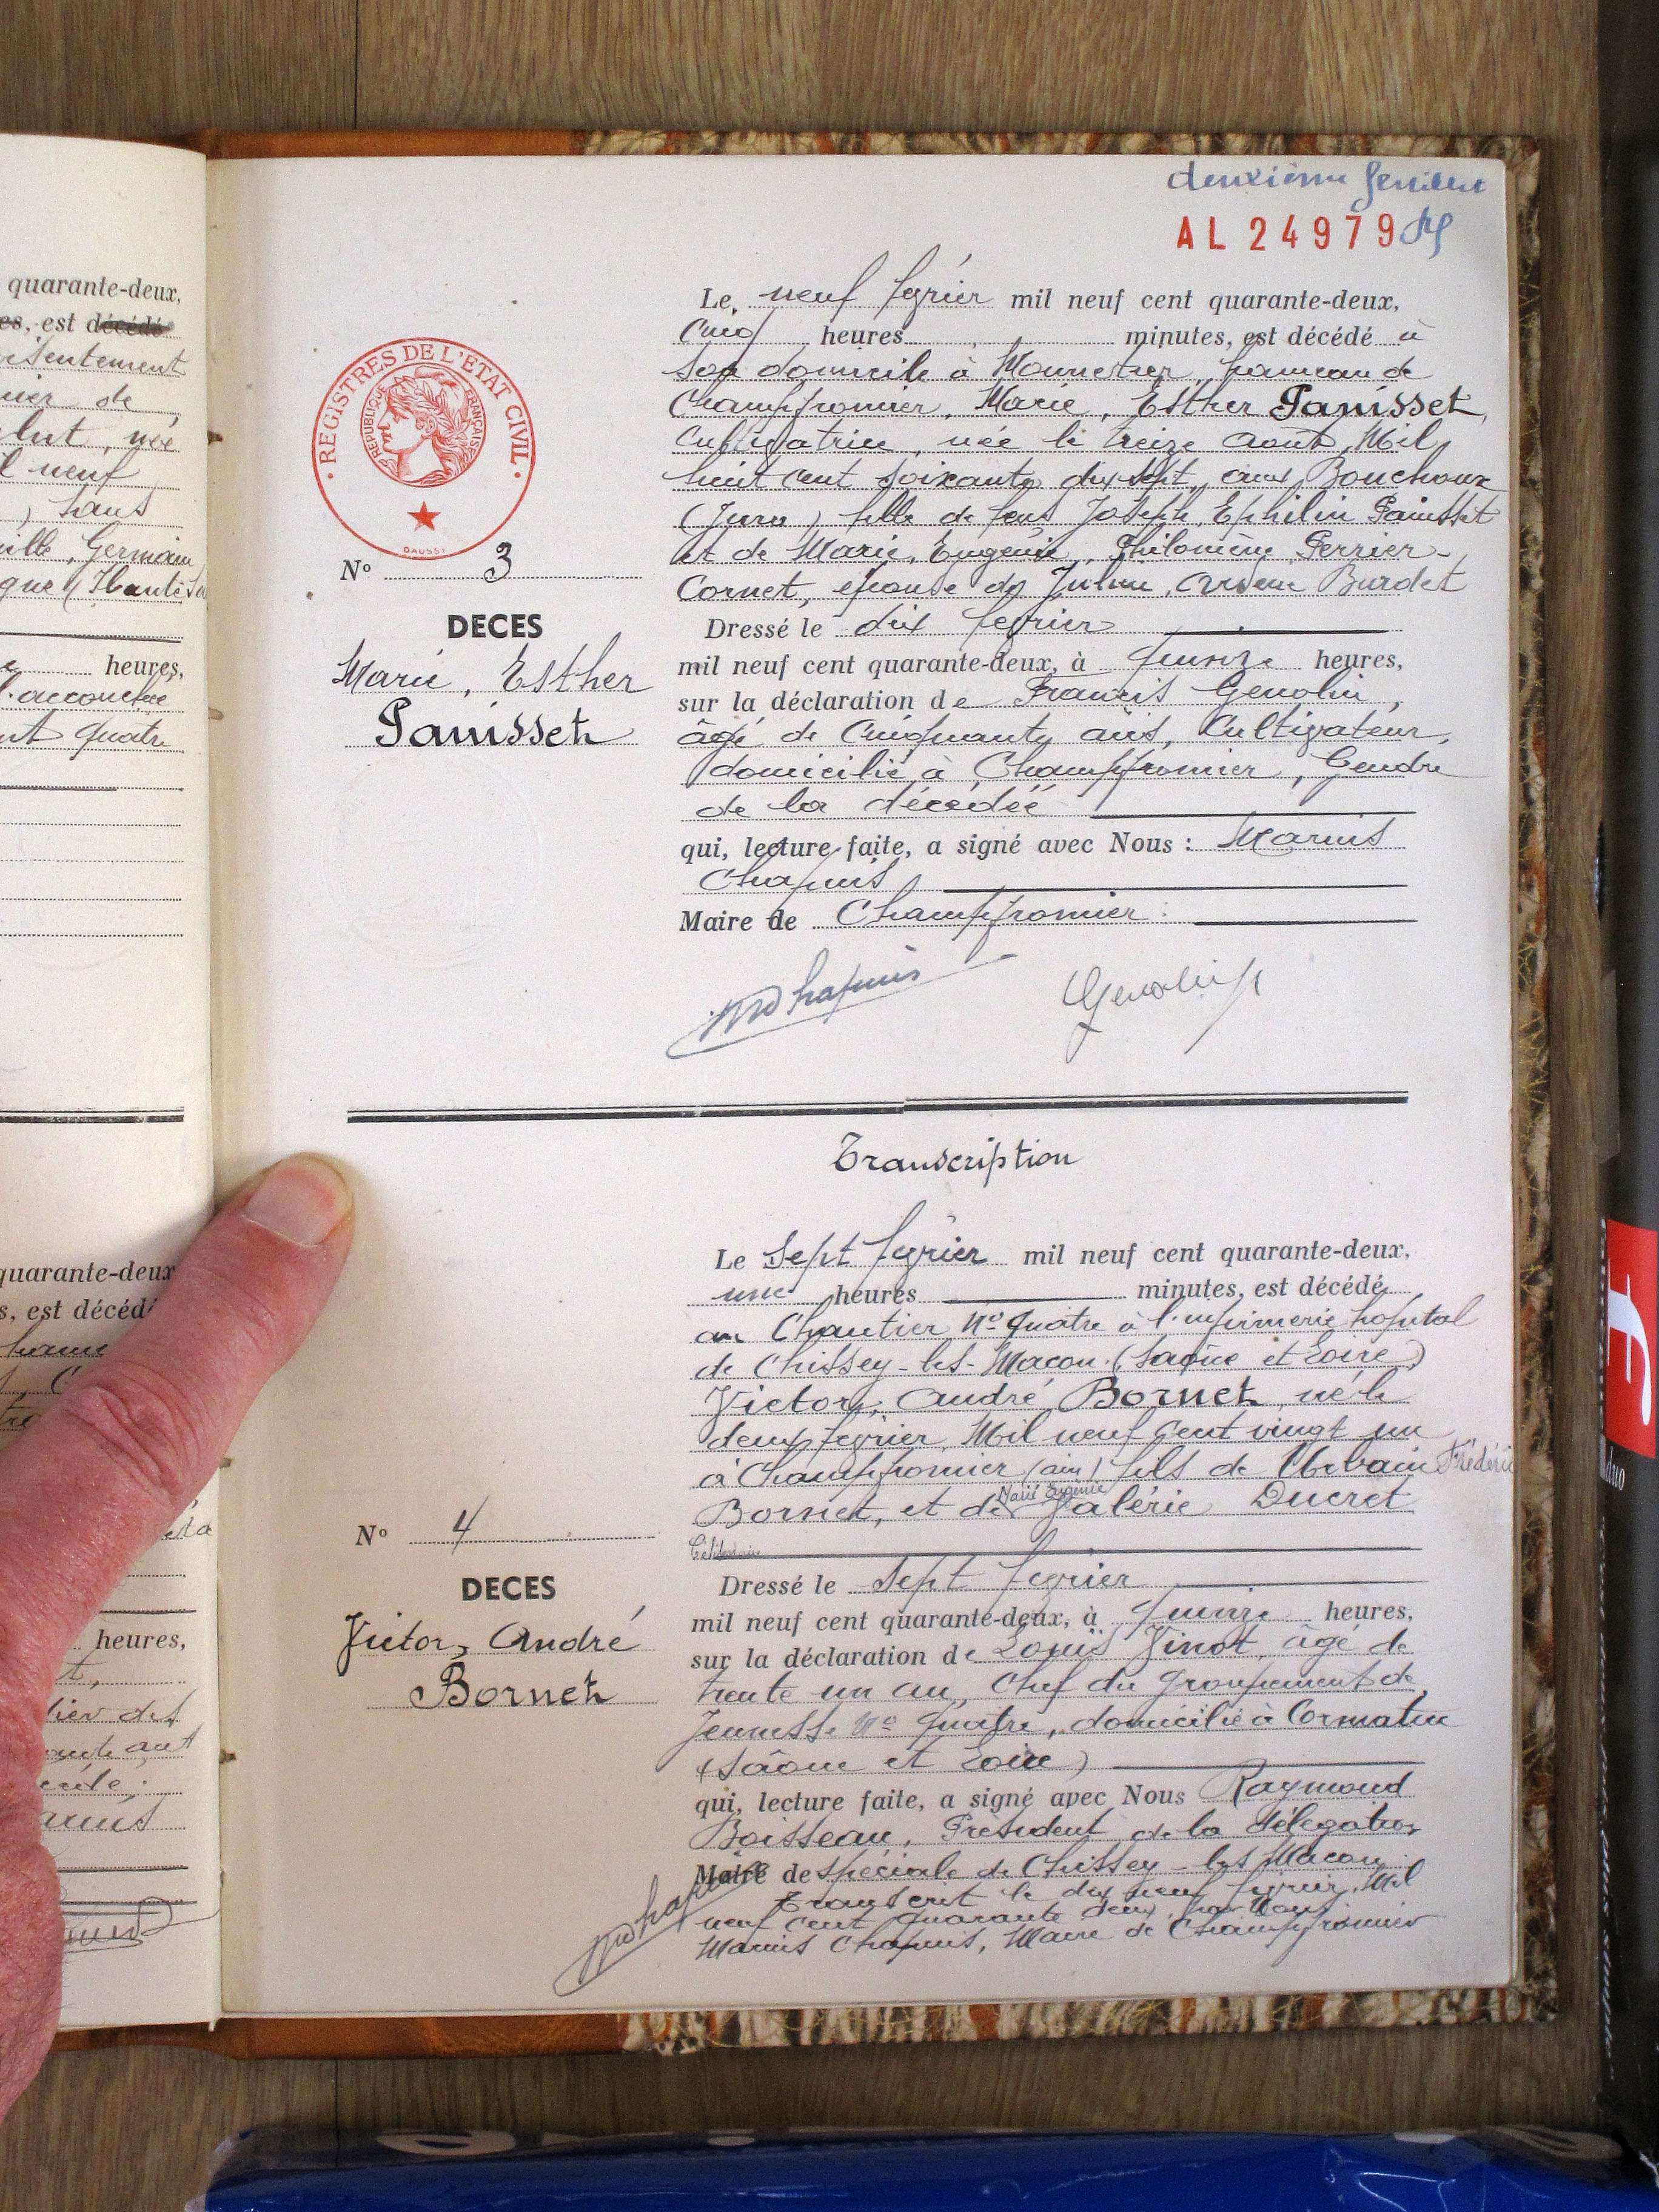 deuxième feuillet
AL 24979
Le, neuf février mil neuf cent quarante-deux,
Cinq heures minutes, est décédé à
son domicile à Monnetier, hameau de
Champfromier, Marie, Esther Panisset,
Cultivatrice, née le treize août, Mil
huit cent soixante dix sept, aux Bouchoux
(Jura) fille de feus Joseph, Ephilin Panisset
et de Marie, Eugénie, Philomène Perrier-
Cornet, épouse de Julien, Arsène Burdet
Dressé le dix février
mil neuf cent quarante-deux, à quinze heures,
sur la déclaration de Francis Genolin,
âgé de Cinquante ans, Cultivateur,
domicilié à Champfromier, Gendre
de la décédée
qui, lecture faite, a signé avec Nous : Marius
Chapuis,
Maire de Champfromier.
MChapuis Genolin
REGISTRES DE L'ETAT CIVIL
REPUBLIQUE FRANÇAISE
N° 3
DECES
Marie, Esther
Panisset
Transcription
Le Sept février mil neuf cent quarante-deux,
une heures minutes, est décédé
au Chantier N° quatre à l'infirmerie hopital
de Chissey-les-Macon (Saône et Loire)
Victor, André Bornet, né le
deux février, Mil neuf cent vingt un
à Champfromier (ain) fils de Urbain Frédéric
Bornet, et de Marie Eugénie Valérie Ducret
Célibataire
Dressé le Sept février
mil neuf cent quarante-deux, à quinze heures,
sur la déclaration de Louis Vinot, âgé de
trente un an, Chef du groupement de
Jeunesse N° quatre, domicilié à Cormatin
(Saône et Loire)
qui, lecture faite, a signé avec Nous Raymond
Boisseau, Président de la délégation
Maire de spéciale de Chissey-les Macon.
Transcrit le dix neuf février, Mil
neuf cent quarante deux, par Nous
Marius Chapuis, Maire de Champfromier
MChapuis
N° 4
DECES
Victor, André
Bornet
quarante-deux,
es, est décédé
nier de
née
l neuf
) sans
Germain
heures,
quatre
quarante-deux
s, est décédé
heures,